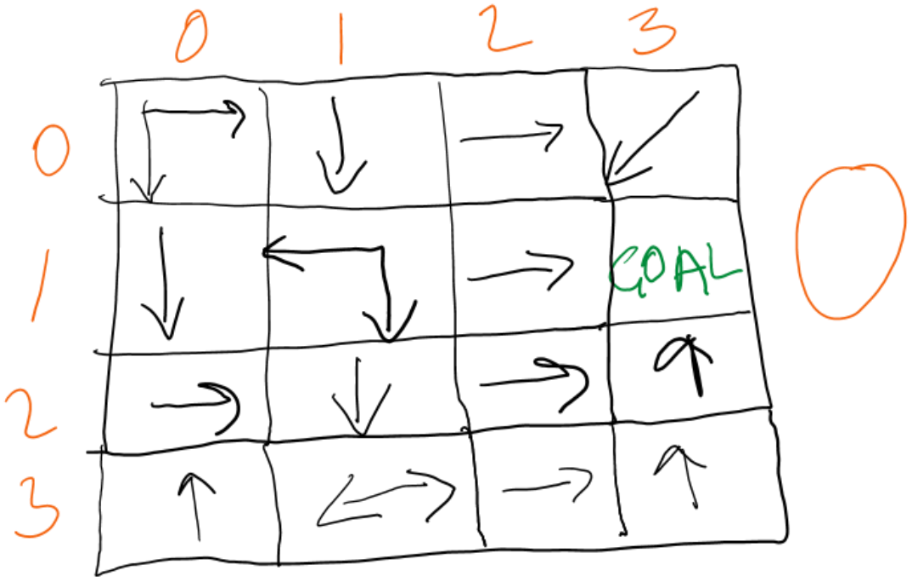 0 1 2 3
0
1
GOAL
2
3